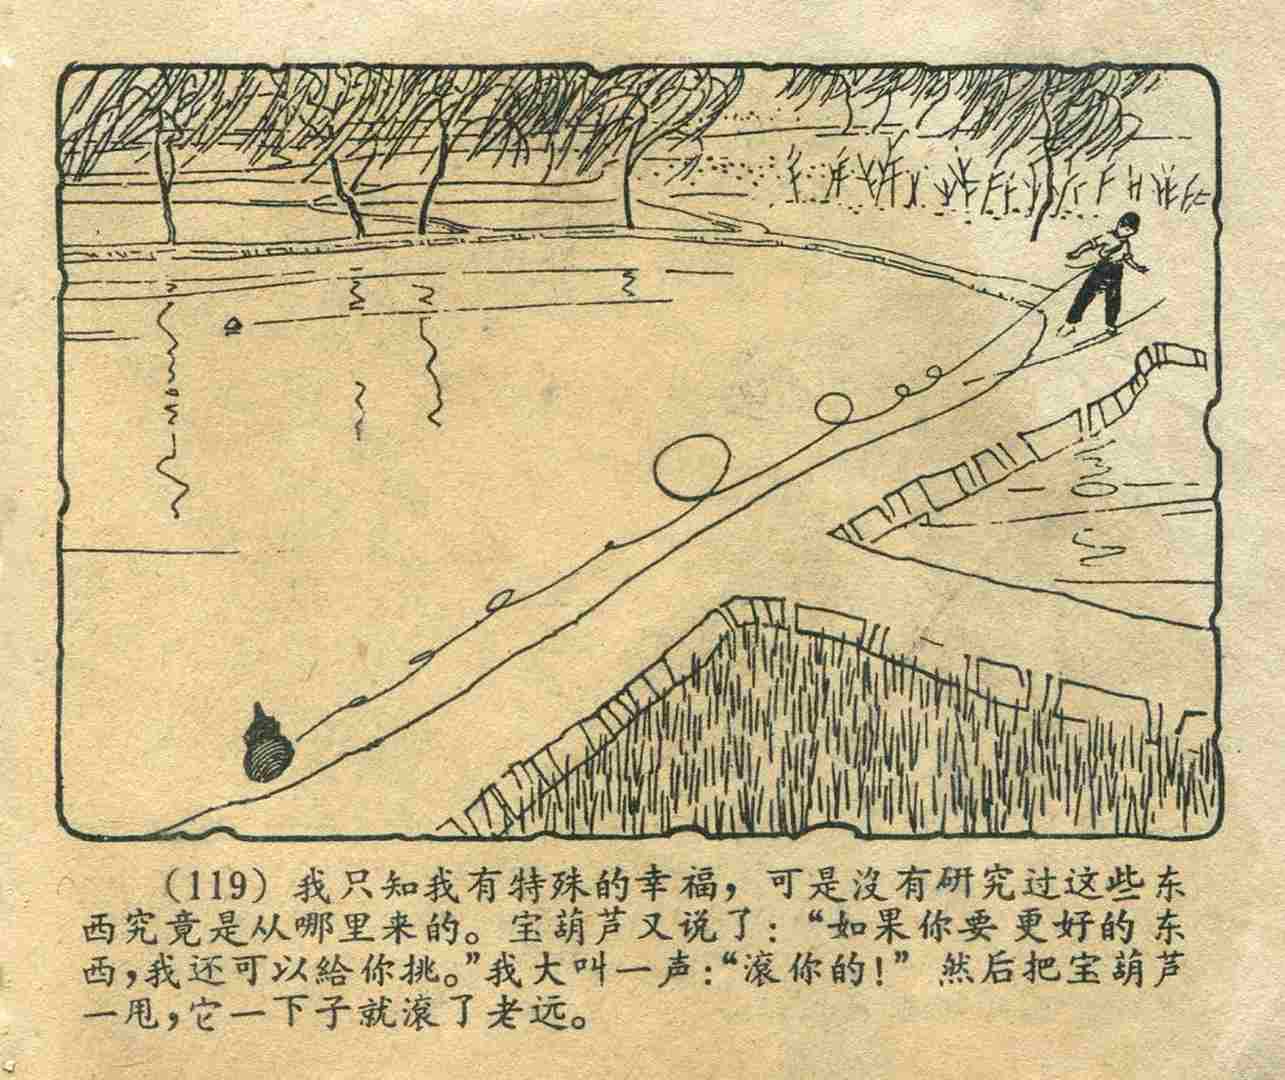 (119) 我只知我有特殊的幸福，可是沒有研究过这些东
西究竟是从哪里来的。宝葫芦又说了：“如果你要更好的东
西，我还可以給你挑。”我大叫一声：“滾你的！” 然后把宝葫芦
一甩，它一下子就滾了老远。